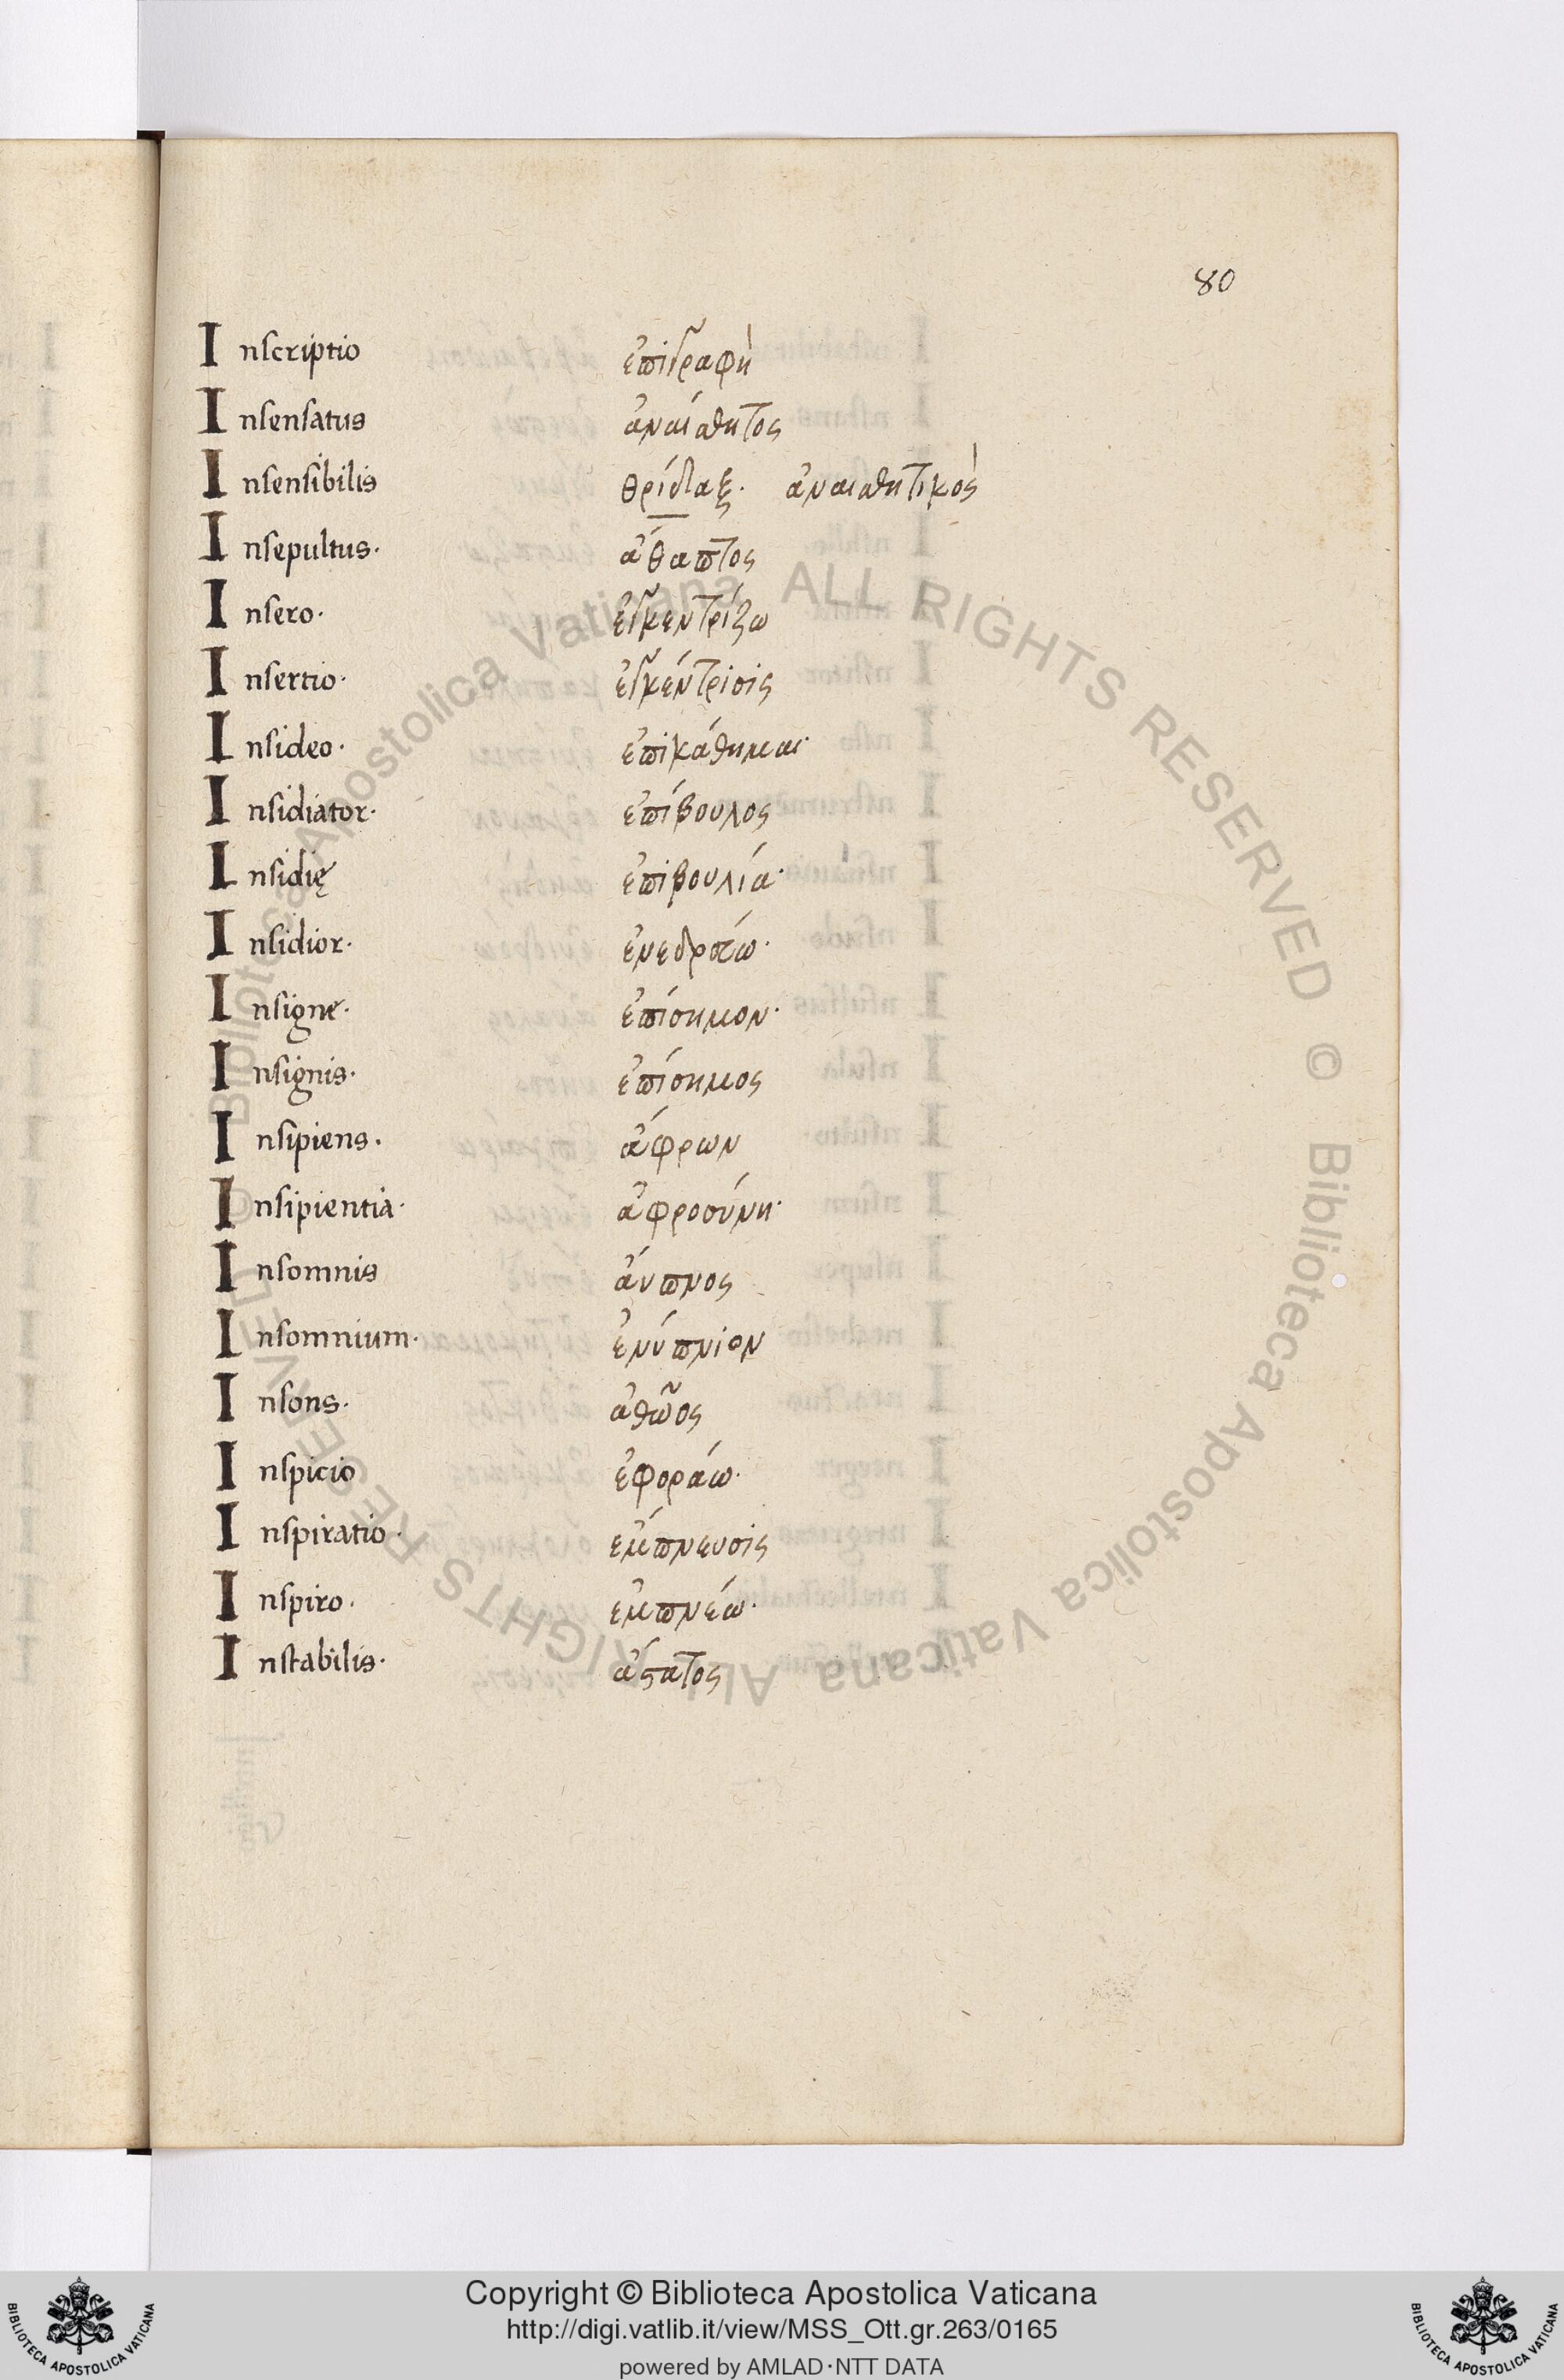 80
Inscriptio ἐπιγραφὴ
Insensatus ἀναίσθητος
Insensibilis θρίδαξ· ἀναισθητικὸς
Insepultus· ἄθαπτος
Insero· ἐγκεντρίζω
Insertio· ἐγκέντρισις
Insideo· ἐπικάθημαι·
Insidiator· ἐπίβουλος
Insidię ἐπιβουλία·
Insidior· ἐνεδράω·
Insigne· ἐπίσημον·
Insignis· ἐπίσημος
Insipiens· ἄφρων
Insipientia· ἀφροσύνη·
Insomnis ἄυπνος
Insomnium· ἐνύπνιον
Insons· ἀθῶος
Inspicio ἐφοράω·
Inspiratio· ἔμπνευσις
Inspiro· ἐμπνέω·
Instabilis· ἄστατος
© Biblioteca Apostolica Vaticana ALL RIGHTS RESERVED © Biblioteca Apostolica Vaticana ALL RIGHTS RESERVED
Copyright © Biblioteca Apostolica Vaticana
http://digi.vatlib.it/view/MSS_Ott.gr.263/0165
powered by AMLAD·NTT DATA
BIBLIOTECA APOSTOLICA VATICANA
BIBLIOTECA APOSTOLICA VATICANA